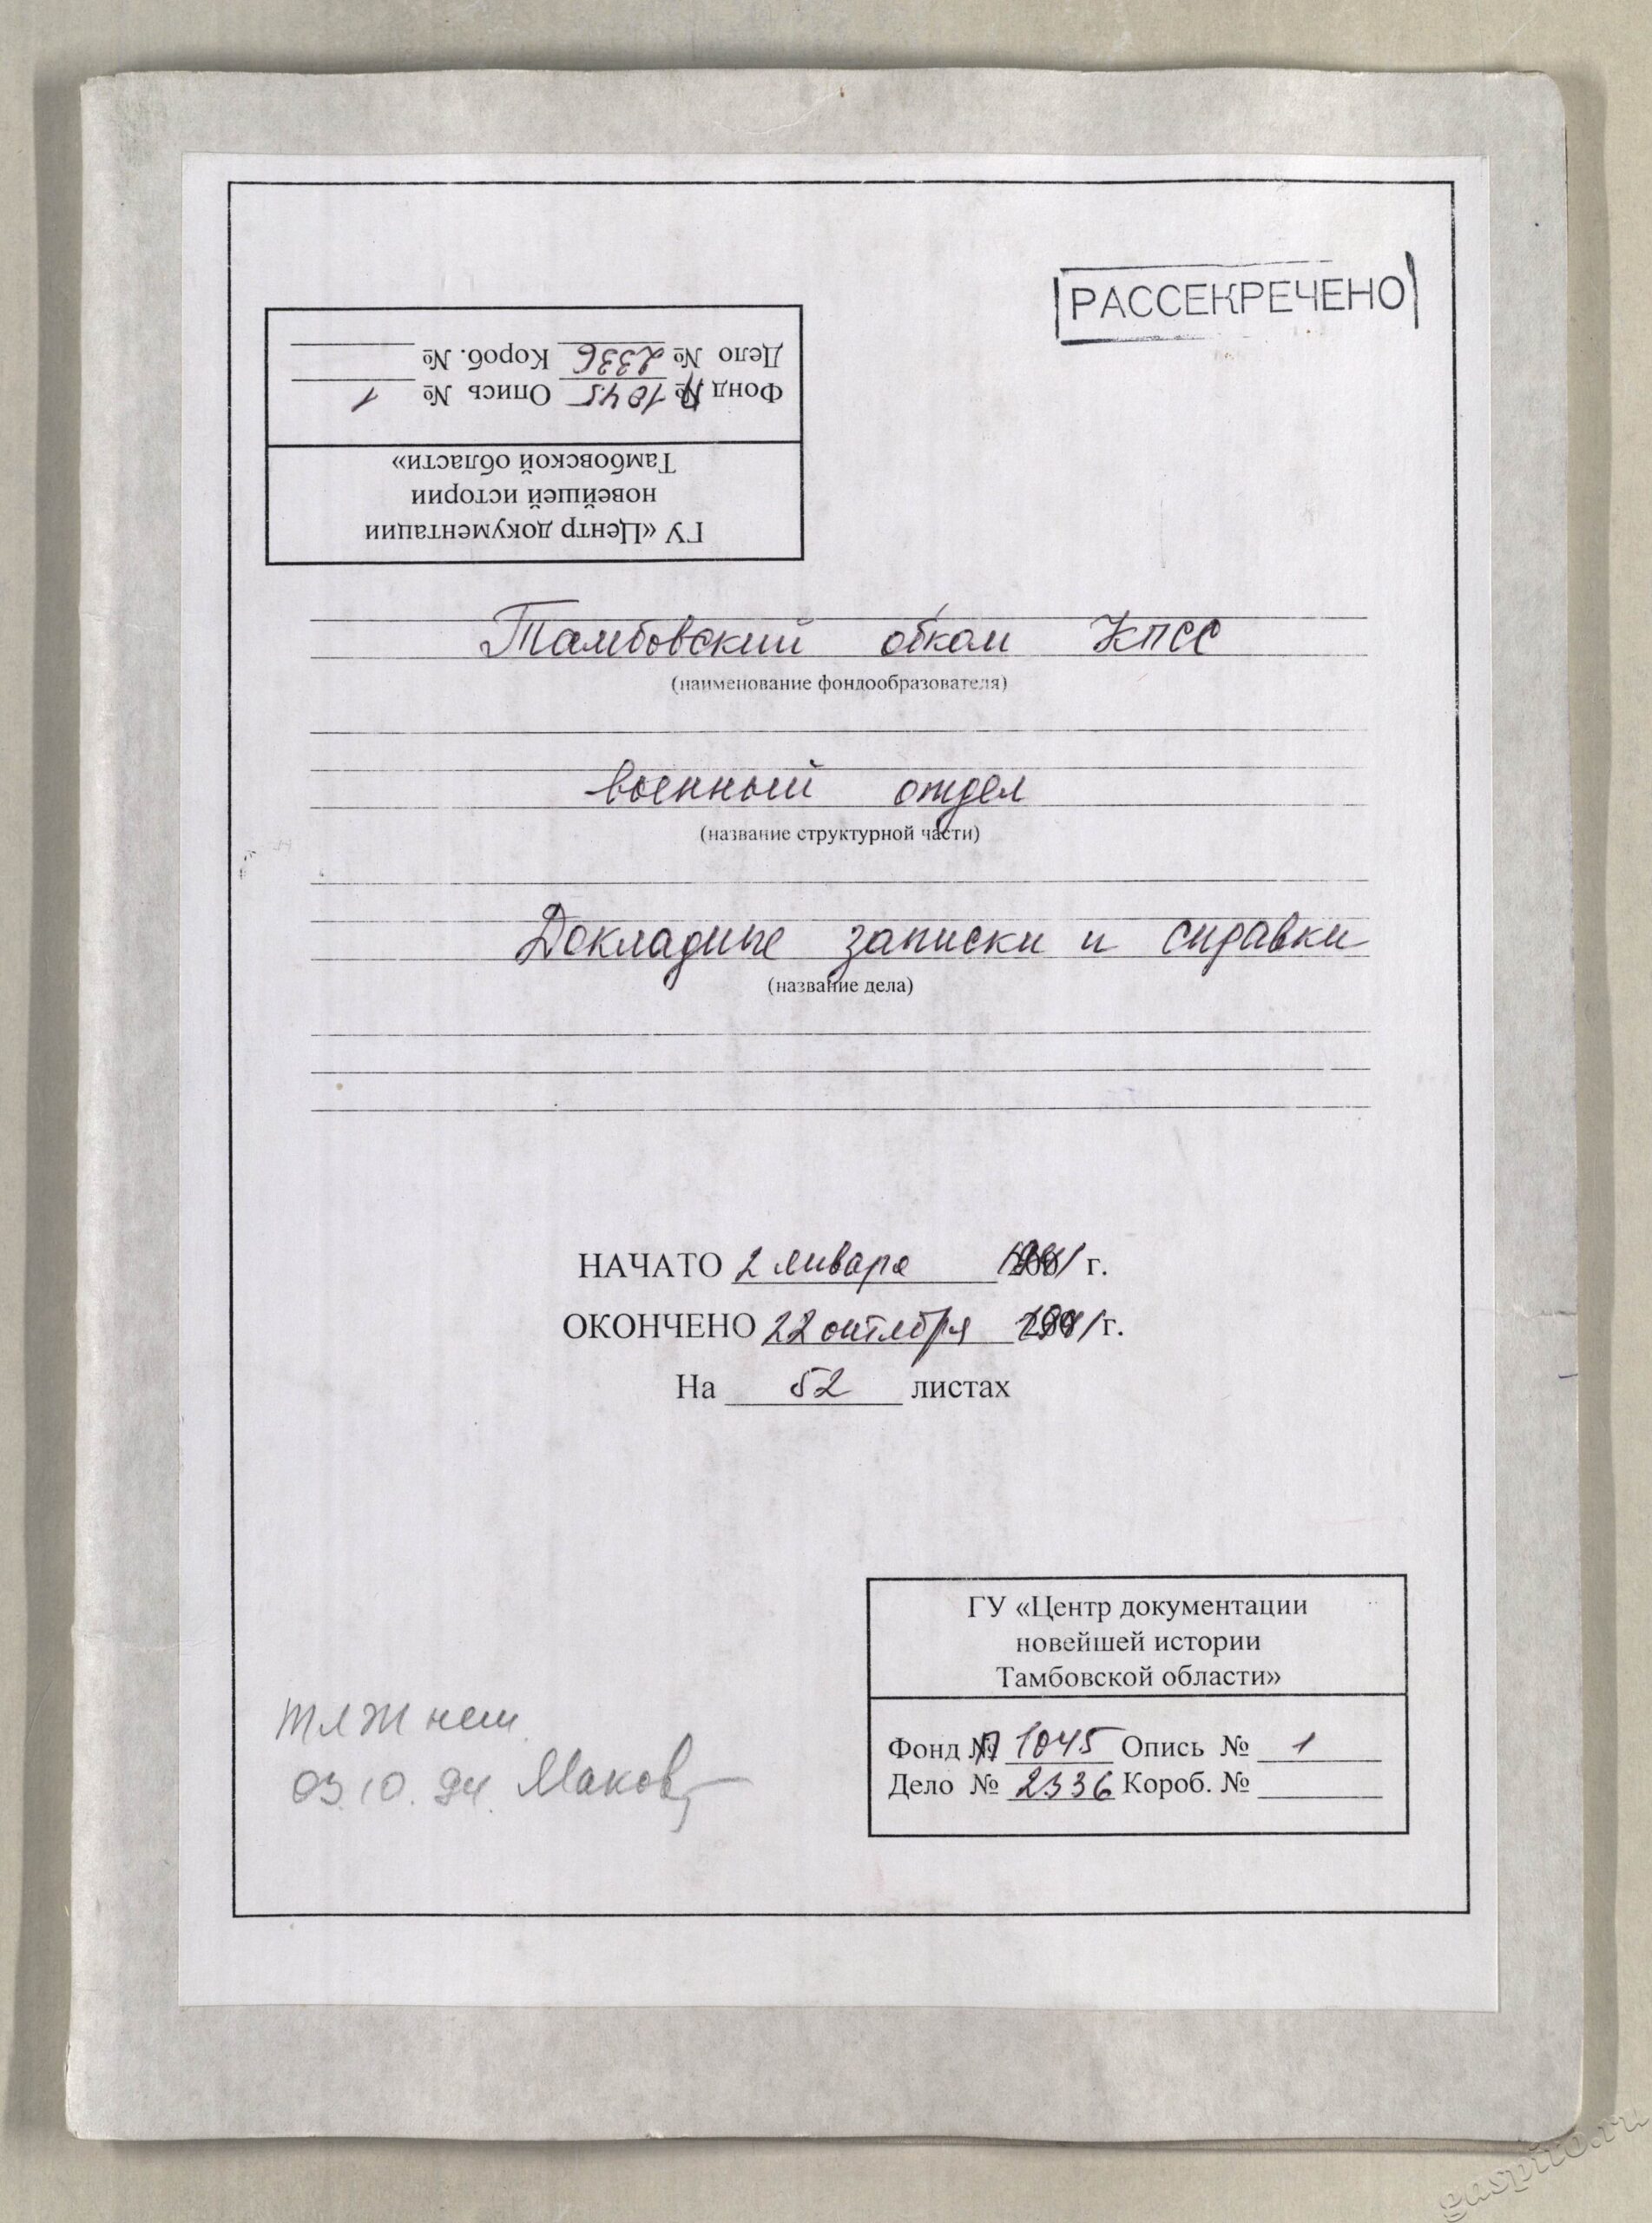 РАССЕКРЕЧЕНО
ГУ «Центр документации
новейшей истории
Тамбовской области»
Фонд П 1045 Опись № 1
Дело № 2336 Короб. №
Тамбовский обком КПСС
(наименование фондообразователя)
военный отдел
(название структурной части)
Докладные записки и справки
(название дела)
НАЧАТО 2 января 1941 г.
ОКОНЧЕНО 22 октября 1941 г.
На 52 листах
ГУ «Центр документации
новейшей истории
Тамбовской области»
Фонд П 1045 Опись № 1
Дело № 2336 Короб. №
нет
03.10.94.
gaspito.ru